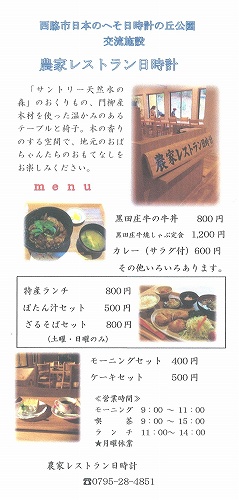 西脇市日本のへそ日時計の丘公園
交流施設
農家レストラン日時計
「サントリー天然水の
森」のおくりもの、門柳産
木材を使った温かみのある
テーブルと椅子。木の香り
のする空間で、地元のおば
ちゃんたちのおもてなしを
お楽しみください。
農家レストラン日時計
menu
黒田庄牛の牛丼 800円
黒田庄牛焼しゃぶ定食 1,200円
カレー（サラダ付）600円
その他いろいろあります。
特産ランチ 800円
ぼたん汁セット 500円
ざるそばセット 800円
(土曜・日曜のみ)
モーニングセット 400円
ケーキセット 500円
≪営業時間≫
モーニング 9：00～11：00
喫茶 9：00～15：00
ランチ 11：00～14：00
★月曜休業
農家レストラン日時計
☎0795-28-4851